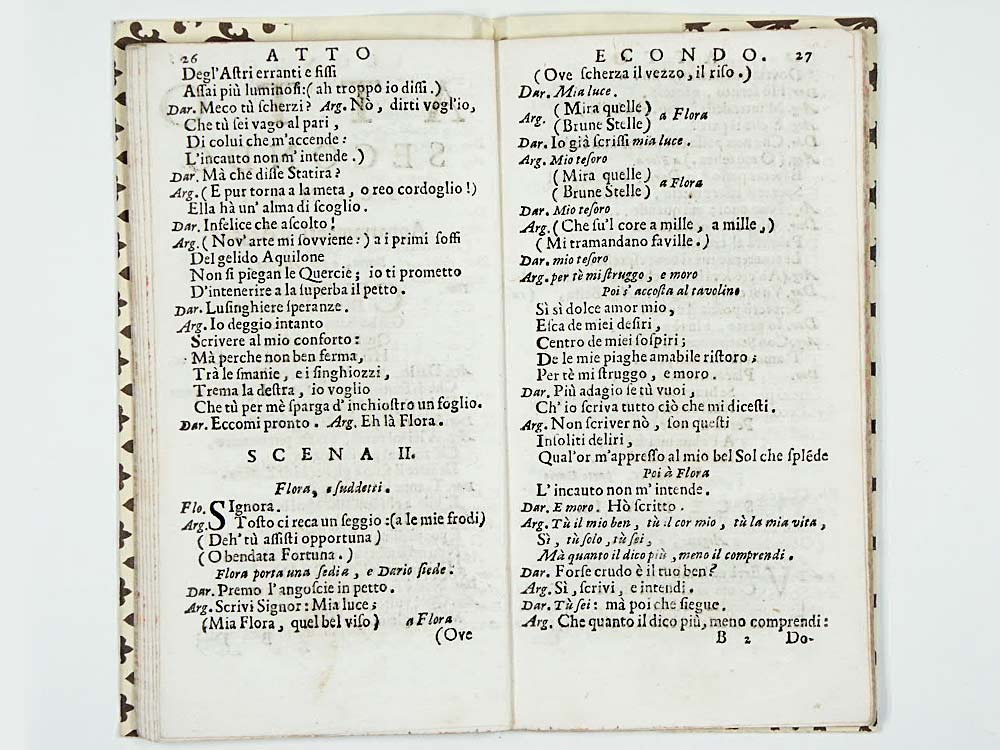 26 ATTO
Degl'Astri erranti e fissi
Assai più luminosi:(ah troppo io dissi.)
Dar. Meco tù scherzi? Arg. Nò, dirti vogl'io,
Che tù sei vago al pari,
Di colui che m'accende:
L'incauto non m'intende.)
Dar. Mà che disse Statira?
Arg. (E pur torna a la meta, o reo cordoglio!)
Ella hà un'alma di scoglio.
Dar. Infelice che ascolto!
Arg. (Nov'arte mi sovviene:) a i primi soffi
Del gelido Aquilone
Non si piegan le Quercie; io ti prometto
D'intenerire a la superba il petto.
Dar. Lusinghiere speranze.
Arg. Io deggio intanto
Scrivere al mio conforto:
Mà perche non ben ferma,
Trà le smanie, e i singhiozzi,
Trema la destra, io voglio
Che tù per mè sparga d'inchiostro un foglio.
Dar. Eccomi pronto. Arg. Eh là Flora.
SCENA II.
Flora, e suddetti.
Flo. SIgnora.
Arg. Tosto ci reca un seggio:(a le mie frodi)
(Deh' tù assisti opportuna)
(O bendata Fortuna.)
Flora porta una sedia, e Dario siede:
Dar. Premo l'angoscie in petto.
Arg. Scrivi Signor: Mia luce;
(Mia Flora, quel bel viso) a Flora
(Ove
ECONDO. 27
(Ove scherza il vezzo, il riso.)
Dar. Mia luce.
(Mira quelle)
Arg. a Flora
(Brune Stelle)
Dar. Io già scrissi mia luce.
Arg. Mio tesoro
(Mira quelle)
(Brune Stelle) a Flora
Dar. Mio tesoro
Arg. (Che su'l core a mille, a mille,)
(Mi tramandano faville.)
Dar. mio tesoro
Arg. per tè mi struggo, e moro
Poi s'accosta al tavolino
Sì sì dolce amor mio,
Esca de miei desiri,
Centro de miei sospiri;
De le mie piaghe amabile ristoro;
Per tè mi struggo, e moro.
Dar. Più adagio se tù vuoi,
Ch'io scriva tutto ciò che mi dicesti.
Arg. Non scriver nò, son questi
Insoliti deliri,
Qual'or m'appresso al mio bel Sol che splẽde
Poi à Flora
L'incauto non m'intende.
Dar. E moro. Hò scritto.
Arg. Tù il mio ben, tù il cor mio, tù la mia vita,
Sì, tù solo, tù sei,
Mà quanto il dico più, meno il comprendi.
Dar. Forse crudo è il tuo ben?
Arg. Sì, scrivi, e intendi.
Dar. Tù sei: mà poi che siegue.
Arg. Che quanto il dico più, meno comprendi:
B 2 Do-